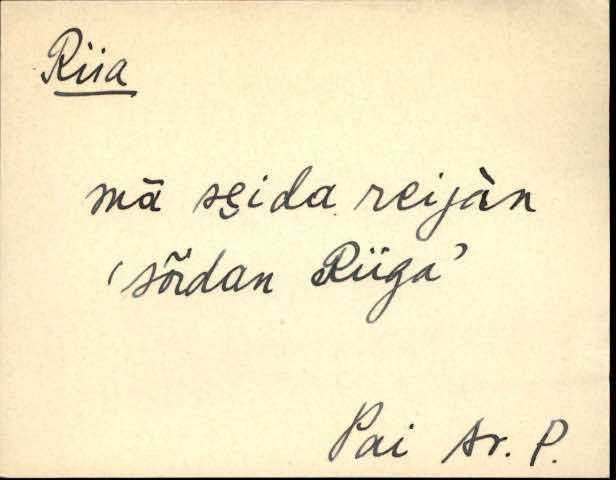 Riia
mā sęida reijàn
‘sõrdan Riiga’
Pai Ar. P.